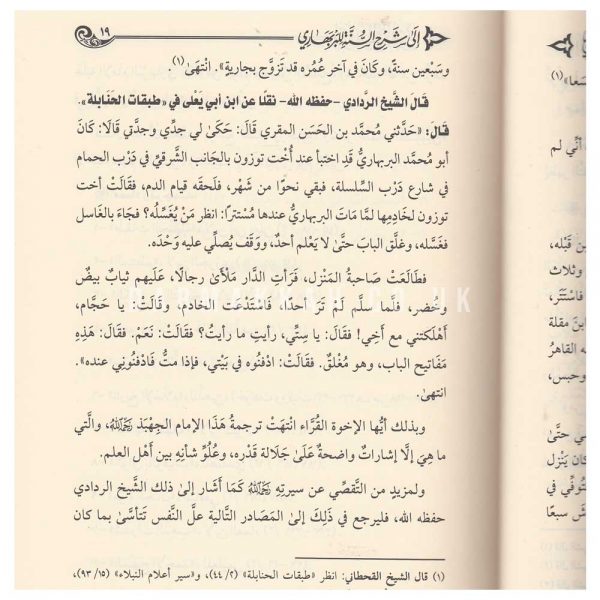 إلى شرح السنة للبربهاري
١٩
وسَبْعين سنةً، وكَانَ في آخر عُمُره قد تَزوَّج بجاريةٍ». انتهىٰ(١).
قَالَ الشَّيخ الرَّدادي -حفظه الله- نقلًا عن ابن أبي يَعْلى في «طبقات الحَنَابلة».
قَالَ: «حَدَّثني مُحمَّد بن الحَسَن المقري قَالَ: حَكىٰ لي جدِّي وجدَّتي قَالَا: كَانَ
أبو مُحمَّد البربهاريُّ قَدِ اختبأ عند أُخْت توزون بالجَانب الشَّرقيِّ في دَرْب الحمام
في شارع دَرْب السِّلسلة، فبقي نحوًا من شَهْر، فلَحقَه قيام الدم، فقَالَتْ أخت
توزون لخَادِمِها لمَّا مَاتَ البربهاريُّ عندها مُسْتترًا: انظر مَنْ يُغَسِّلُه؟ فجَاءَ بالغَاسل
فغَسَّله، وغلَّق البابَ حتَّىٰ لَا يَعْلم أحدٌ، ووَقَف يُصلِّي عليه وَحْدَه.
فطَالعَتْ صَاحبةُ المَنْزل، فرَأتِ الدَّار مَلْأىٰ رجالًا، عَلَيهم ثيابٌ بيضٌ
وخُضر، فلَمَّا سلَّم لَمْ تَرَ أحدًا، فَاسْتَدعَت الخادم، وقَالَتْ: يا حَجَّام،
أهلكتني مع أَخِي! فقَالَ: يا سِتِّي، رأيتِ ما رأيتُ؟ فقالَتْ: نَعَمْ. فقَالَ: هَذِهِ
مَفَاتيح الباب، وهو مُغْلقٌ. فقَالَتْ: ادْفنُوه في بَيْتي، فإذا متُّ فَادْفنُوني عنده».
انتهىٰ.
وبذلك أيُّها الإخوة القُرَّاء انْتهَتْ ترجمةُ هَذَا الإمام الجِهْبَذ رَحِمَهُ اللهُ، والَّتي
ما هِيَ إلَّا إشاراتٌ واضحةٌ عَلَىٰ جَلالة قَدْره، وعُلُوِّ شأنِهِ بين أَهْل العلم.
ولمزيدٍ من التَّقصِّي عن سيرتِهِ رَحِمَهُ اللهُ كَمَا أَشَار إلىٰ ذلك الشَّيخ الردادي
حفظه الله، فليرجع في ذَلكَ إلىٰ المَصَادر التَّالية علَّ النَّفس تَتأسَّىٰ بمَا كان
(١) قال الشيخ القحطاني: انظر «طبقات الحنابلة» (٢/ ٤٤)، و«سير أعلام النبلاء» (١٥/ ٩٣)،
سَعا»(١)
أنِّي لم
ن قَبْله،
وثلاث
فاسْتَتَر،
ابنَ مقلة
له القاهرُ
وحبس،
ي حتَّىٰ
كان يَنْزل
تُوفِّي في
شَ سبعًا